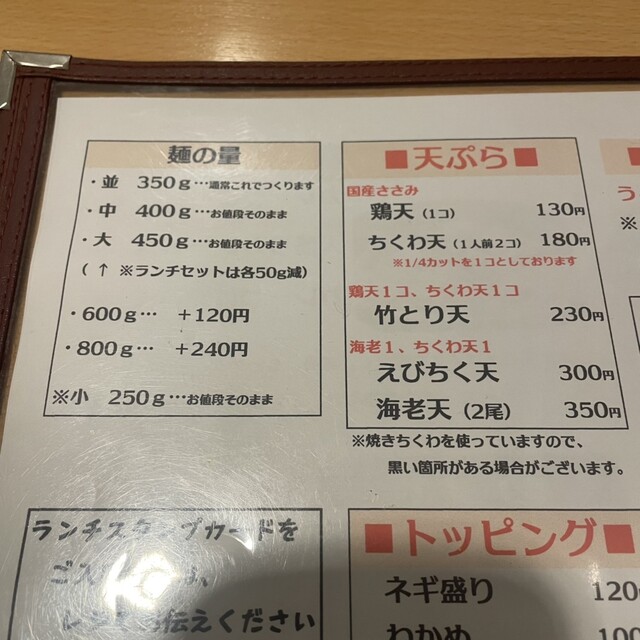 麺の量
・並 350g…通常これでつくります
・中 400g…お値段そのまま
・大 450g…お値段そのまま
(↑ ※ランチセットは各50g減)
・600g… +120円
・800g… +240円
※小 250g…お値段そのまま
■天ぷら■
国産ささみ
鶏天(1コ) 130円
ちくわ天(1人前2コ) 180円
※1/4カットを1コとしております
鶏天1コ、ちくわ天1コ
竹とり天 230円
海老1、ちくわ天1
えびちく天 300円
海老天(2尾) 350円
※焼きちくわを使っていますので、
黒い箇所がある場合がございます。
ランチスタンプカードを
ご
伝えください
■トッピング■
ネギ盛り 120
わかめ 100
■
う
※